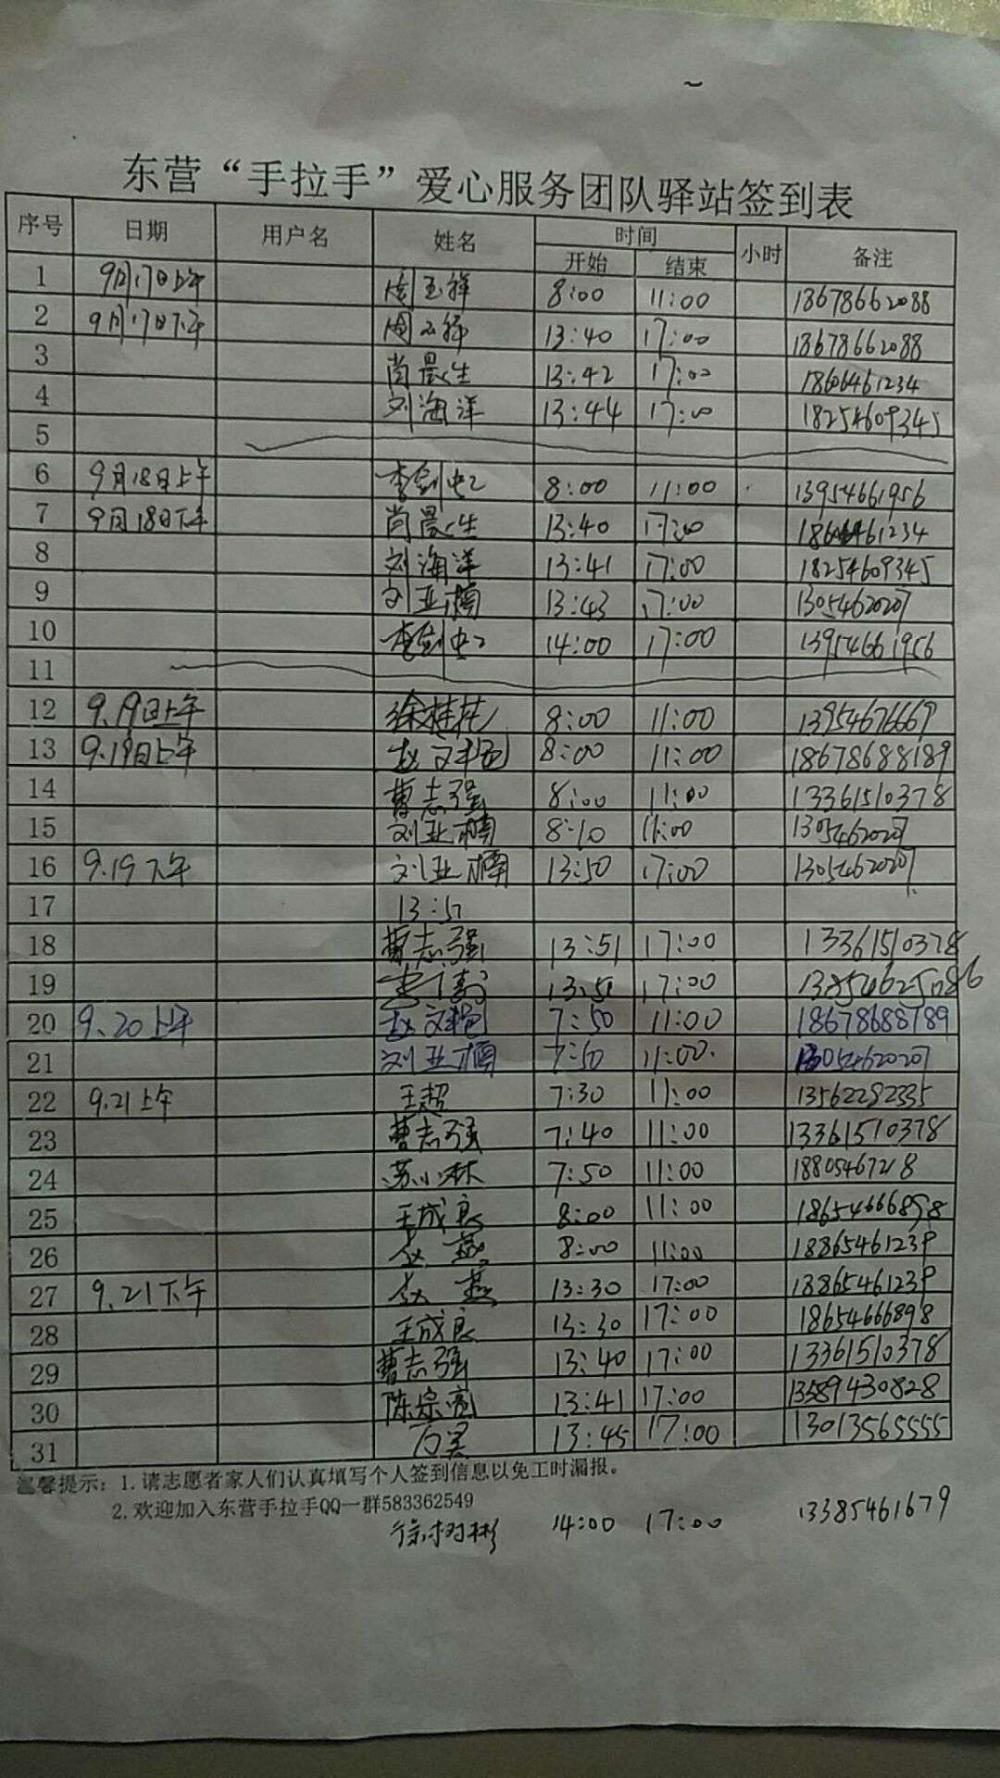 东营“手拉手”爱心服务团队驿站签到表
序号 日期 用户名 姓名 时间 小时 备注
开始 结束
1 9月17日上午 周玉祥 8:00 11:00 18678662088
2 9月17日下午 周玉祥 13:40 17:00 18678662088
3 肖晨生 13:42 17:00 18606461234
4 刘海洋 13:44 17:00 18254609345
5
6 9月18日上午 8:00 11:00 13954661956
7 9月18日下午 肖晨生 13:40 17:00 18606461234
8 刘海洋 13:41 17:00 18254609345
9 刘亚楠 13:43 17:00 13054620207
10 14:00 17:00 13954661956
11
12 9.19日上午 徐桂花 8:00 11:00 13954676669
13 9.19日上午 赵文艳 8:00 11:00 18678688189
14 曹志强 8:00 11:00 13361510378
15 刘亚楠 8:10 11:00 13054620207
16 9.19下午 刘亚楠 13:50 17:00 13054620207
17 13:51
18 曹志强 13:51 17:00 13361510378
19 13:51 17:00 13854625086
20 9.20上午 赵文艳 7:50 11:00 18678688189
21 刘亚楠 7:50 11:00 13054620207
22 9.21上午 王超 7:30 11:00 13562292335
23 曹志强 7:40 11:00 13361510378
24 苏小林 7:50 11:00 18805467218
25 王成良 8:00 11:00 18654666898
26 赵燕 8:00 11:00 18865461239
27 9.21下午 赵燕 13:30 17:00 18865461239
28 王成良 13:30 17:00 18654666898
29 曹志强 13:40 17:00 13361510378
30 陈宗亮 13:41 17:00 13589430828
31 13:45 17:00 13013565555
温馨提示：1.请志愿者家人们认真填写个人签到信息以免工时漏报。
2.欢迎加入东营手拉手QQ一群583362549
徐树彬 14:00 17:00 13385461679